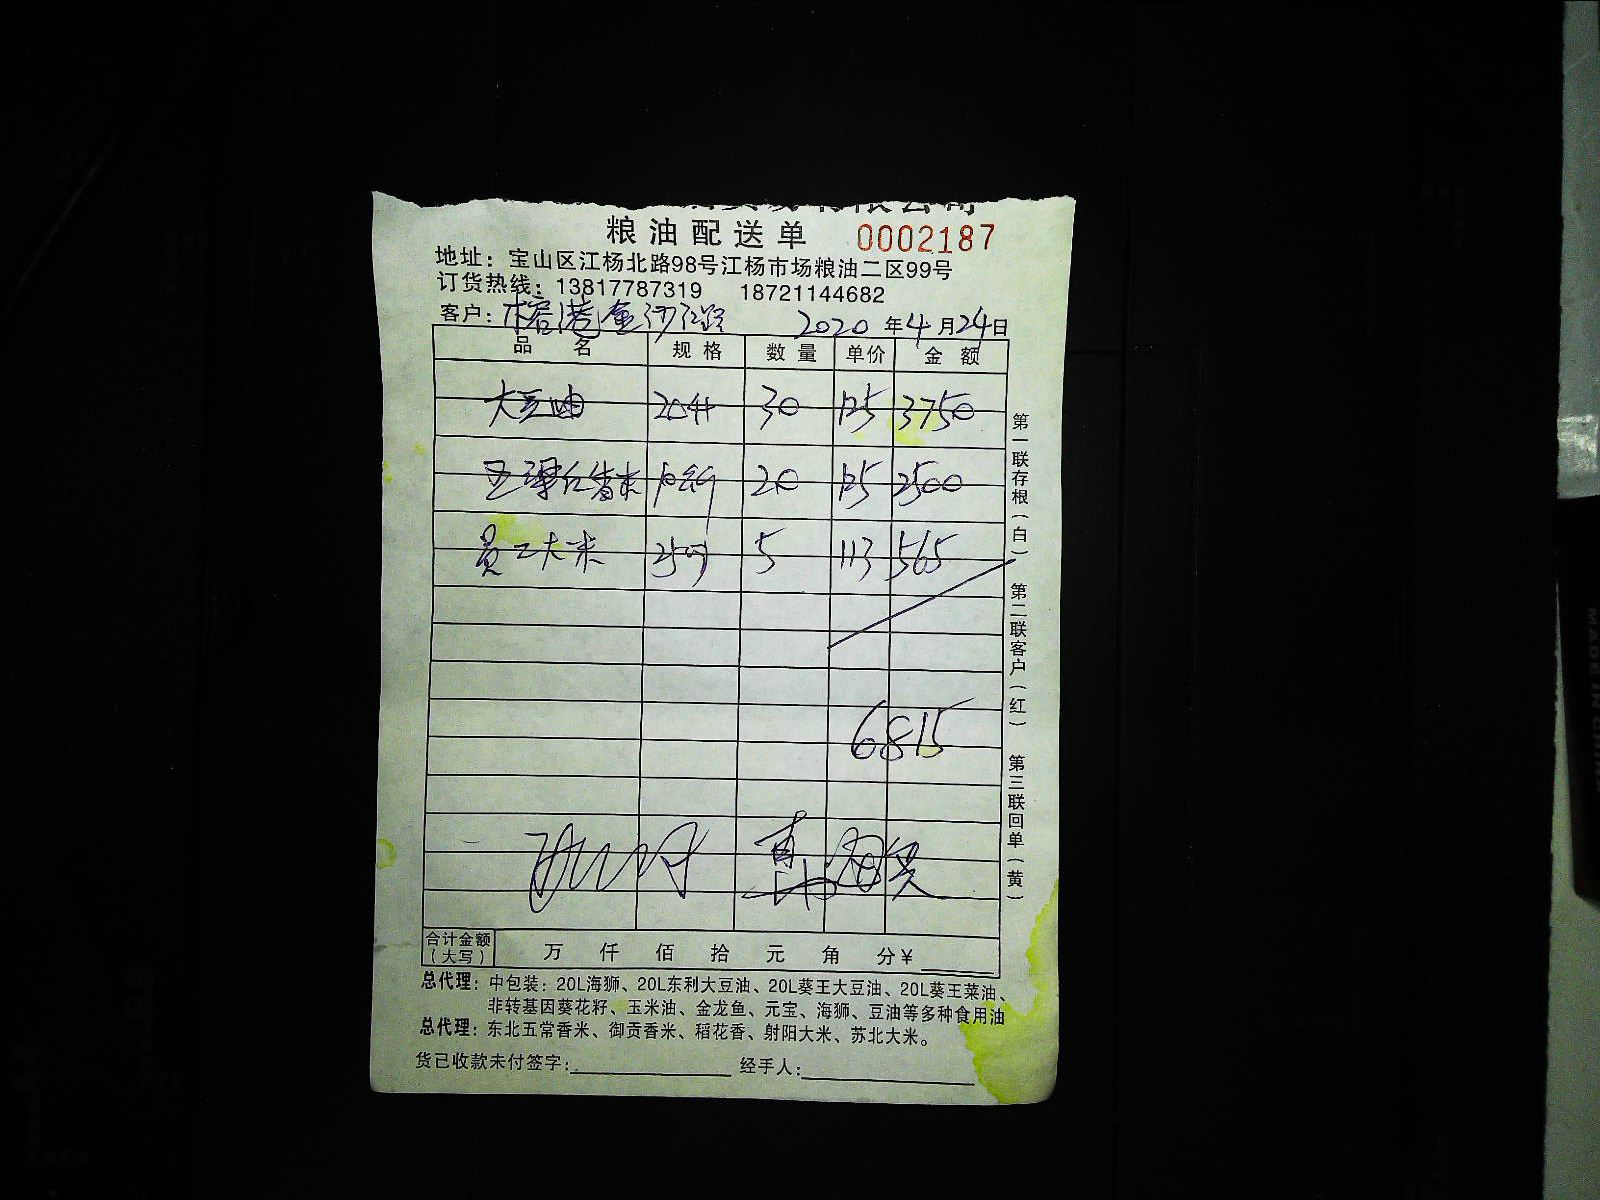 限公司
粮油配送单 0002187
地址：宝山区江杨北路98号江杨市场粮油二区99号
订货热线：13817787319 18721144682
客户：榕港金沙江路 2020年4月24日
品名 规格 数量 单价 金额
大豆油 20升 30 125 3750
20 125 2500
员工大米 25 5 113 565
6815
合计金额（大写） 万 仟 佰 拾 元 角 分￥
总代理：中包装：20L海狮、20L东利大豆油、20L葵王大豆油、20L葵王菜油、
非转基因葵花籽、玉米油、金龙鱼、元宝、海狮、豆油等多种食用油
总代理：东北五常香米、御贡香米、稻花香、射阳大米、苏北大米。
货已收款未付签字： 经手人：
第一联存根（白） 第二联客户（红） 第三联回单（黄）
MADE IN CHINA